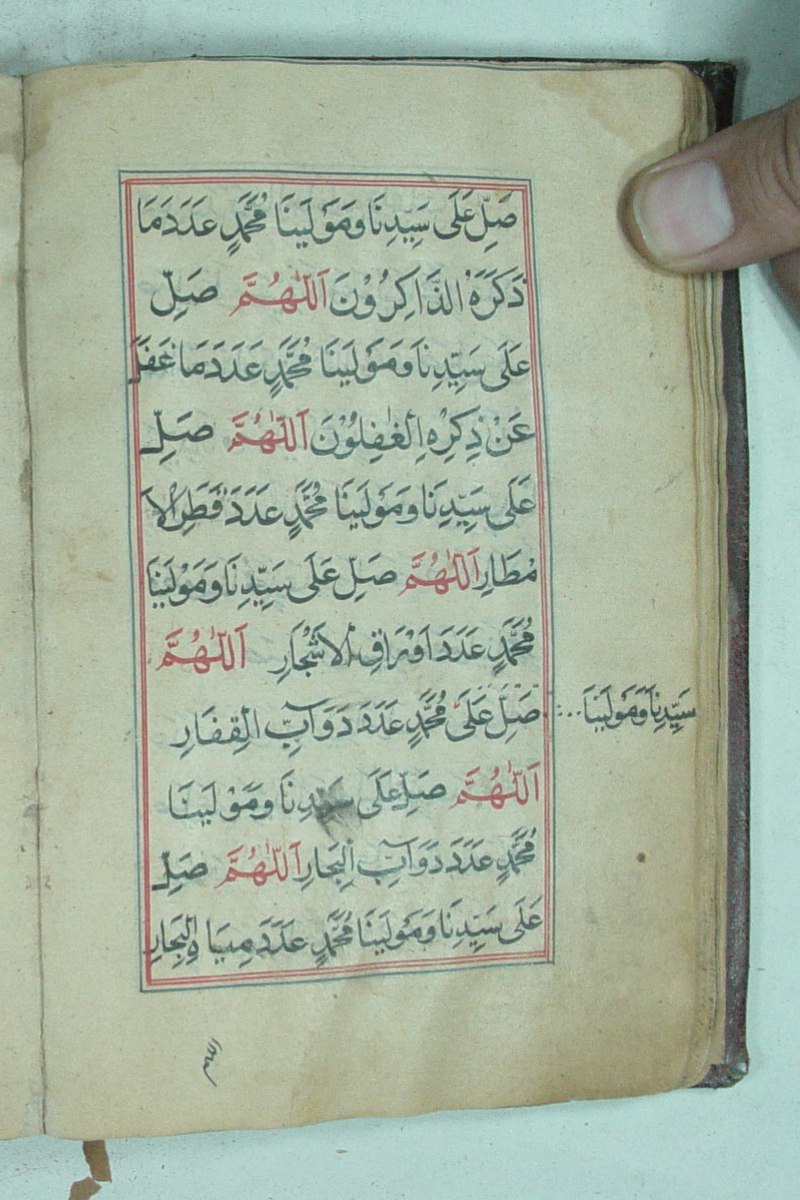 صَلِّ عَلَى سَيِّدِنَا وَمَوْلَيْنَا مُحَمَّدٍ عَدَدَ مَا
ذَكَرَهُ الذَّاكِرُوْنَ اَللّٰهُمَّ صَلِّ
عَلَى سَيِّدِنَا وَمَوْلَيْنَا مُحَمَّدٍ عَدَدَ مَا غَفَلَ
عَنْ ذِكْرِهِ الْغٰفِلُوْنَ اَللّٰهُمَّ صَلِّ
عَلَى سَيِّدِنَا وَمَوْلَيْنَا مُحَمَّدٍ عَدَدَ قَطْرِ الْاَ
مْطَارِ اَللّٰهُمَّ صَلِّ عَلَى سَيِّدِنَا وَمَوْلَيْنَا
مُحَمَّدٍ عَدَدَ اَوْرَاقِ الْاَشْجَارِ اَللّٰهُمَّ
صَلِّ عَلَى مُحَمَّدٍ عَدَدَ دَوَآبِّ الْقِفَارِ
سَيِّدِنَا وَمَوْلَيْنَا
اَللّٰهُمَّ صَلِّ عَلَى سَيِّدِنَا وَمَوْلَيْنَا
مُحَمَّدٍ عَدَدَ دَوَآبِّ الْبِحَارِ اَللّٰهُمَّ صَلِّ
عَلَى سَيِّدِنَا وَمَوْلَيْنَا مُحَمَّدٍ عَدَدَ مِيَاهِ الْبِحَارِ